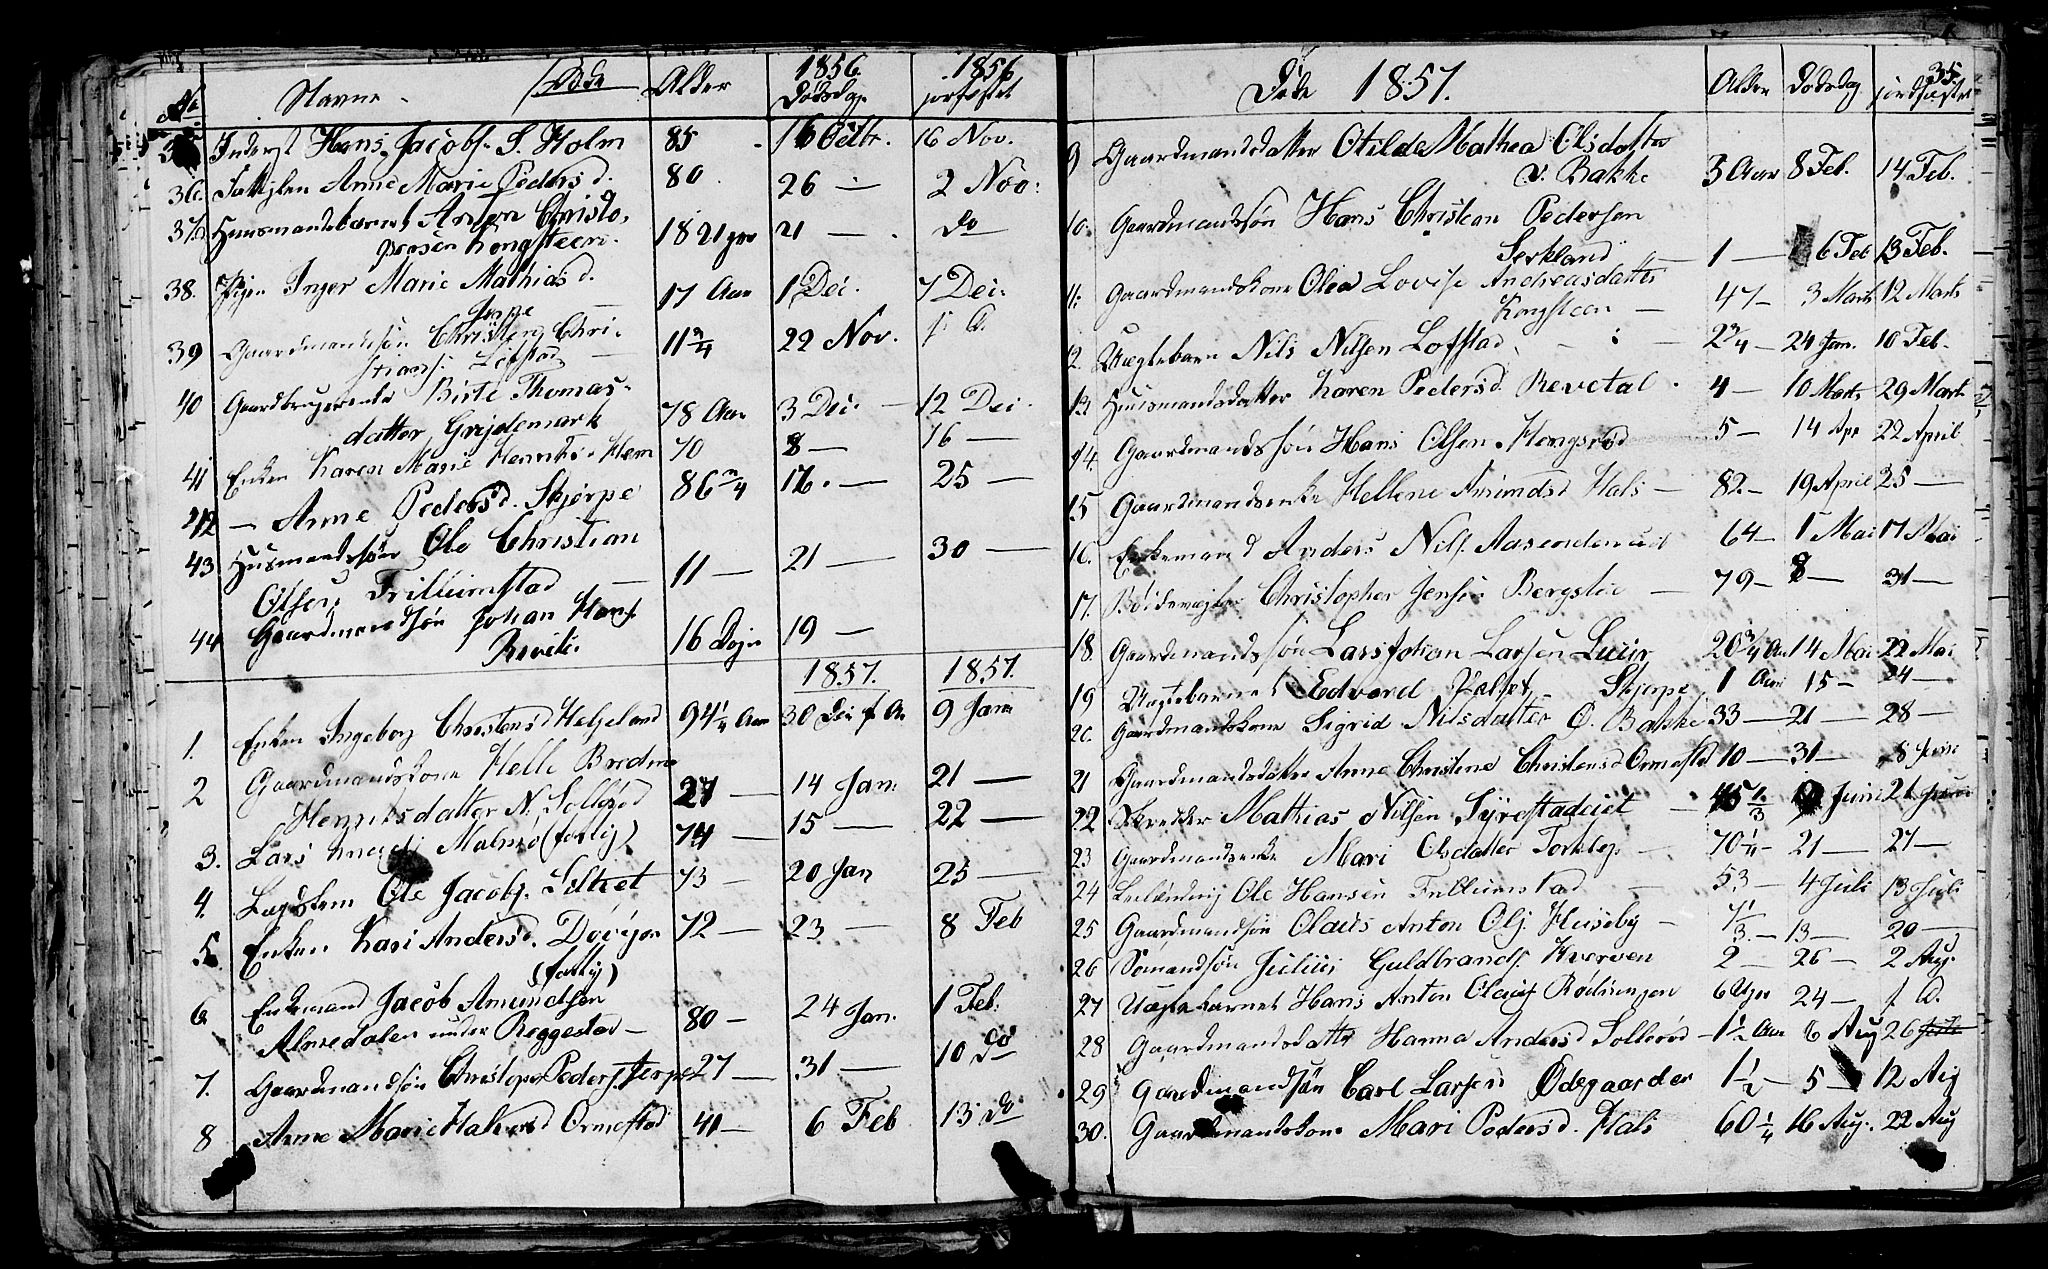 No Navne Døde Alder 1856. Dødsdag 1856 jordfæstet
Inderst Hans Jacobs. S. Holm 85 16 Octbr. 16 Nov.
36. Anne Marie Pedersd. 80 26 — 2 Nov:
37. Huusmandsbarnet Anton Christo-
phersen Kongsteen. 21 — do
38. Pige Inger Marie Mathiasd. 17 Aar 1 Dec. 7 Dec.
Jerpe
39 Gaardmandssøn Christen Chri- 11 3/4 22 Nov.
stians. Lofstad
40 Gaardbrugerenke Birte Thomas-
datter Grejdemark 78 Aar 3 Dec. 12 Dec.
41 Enken Karen Marie Henriksd. Hem 70 8 — 16 —
42 — Anne Pedersd. Skjerpe 86 3/4 16. — 25 —
43. Husmandssøn Ole Christian
Olsen Trillumstad 11 — 21 — 30 —
44 Gaardmandssøn Johan Hans. 16 Dage 19 —
Revet.
1857. 1857.
1. Enken Ingeborg Christensd Helgeland 94 1/2 Aar 30 Dec f. A. 9 Jan
2 Gaardmandskone Helle Bredine
Henriksdatter N. Sollerød 27 — 14 Jan. 21 —
3. Lars Malmø (fattig) 74 — 15 — 22 —
4. Lægdslem Ole Jacobs. Sletket 73 — 20 Jan 25 —
5. Enken Kari Andersd. Døvigen 72 — 23 — 8 Feb
(fattig)
6 Enkemand Jacob Amundsen
Almedalen under Reggestad — 80 — 24 Jan. 1 Feb.
7. Gaardmandssøn Christopher Peders. Jerpe 27 — 31 — 10 do
8 Anne Marie Halvorsd Ormestad 41 — 6 Feb 13 do
Døde 1857. Alder Dødsdag 35. jordfæstet
9 Gaardmandsdatter Otilde Mathea Olsdatter
v. Bakke 3 Aar 8 Feb. 14 Feb.
10. Gaardmandssøn Hans Christian Pedersen
Serkland 1 — 6 Feb 13 Feb.
11. Gaardmandskone Olea Lovise Andreasdatter
Kongsteen — 47 — 3 Marts 12 Marts
12. Uægtebarn Nils Nilsen Lofstad 2 3/4 — 24 Jan. 10 Feb.
13. Huusmandsdatter Karen Pedersd. Revetal. 4 — 10 Marts 29 Marts
14. Gaardmandssøn Hans Olsen Hengsrød 5 — 14 Apr 22 April
15 Gaardmandsenke Hellene Amundsd Hals — 82. — 19 April 25 —
16. Enkemand Anders Nils. Aasendeneiet 64 — 1 Mai 17 Mai
17. Christopher Jensen Bergslie — 79 — 8 — 31 —
18. Gaardmandssøn Lars Johan Larsen 20 3/4 Aar 14 Mai 22 Mai
19 Uægtebarnet Edvard Skjerpe 1 Aar 15 — 24 —
20. Gaardmandskone Sigrid Nilsdatter Ø. Bakke 33 — 21 — 28 —
21 Gaardmandsdatter Anne Christine Christensd Ormestad 10 — 31 — 8 Juni
22 Skredder Mathias Nilsen Syrestadeiet 45 1/3 Juni 21 Juni
23 Gaardmandsenke Mari Olsdatter Torklep — 70 1/4 — 21 — 27 —
24 Leilænding Ole Hansen Trillumstad — 53 — 4 Juli 13 Juli
25 Gaardmandssøn Olaus Anton Ols. Huseby — 1/3 — 13 — 20 —
26 Sømandssøn Julius Guldbrands. Kverven 2 — 26 — 2 Aug.
27 Uægtebarnet Hans Anton Olaus Rødsengen 6 Uger 24 — s. D.
28 Gaardmandsdatter Hanna Andersd Sollerød — 1 1/2 Aar 6 Aug 26
29 Gaardmandssøn Carl Larsen Ødegaarden 1 1/2 — 5 — 12 Aug
30. Gaardmandskone Mari Pedersd. Hals 60 1/4 16 Aug. 22 Aug